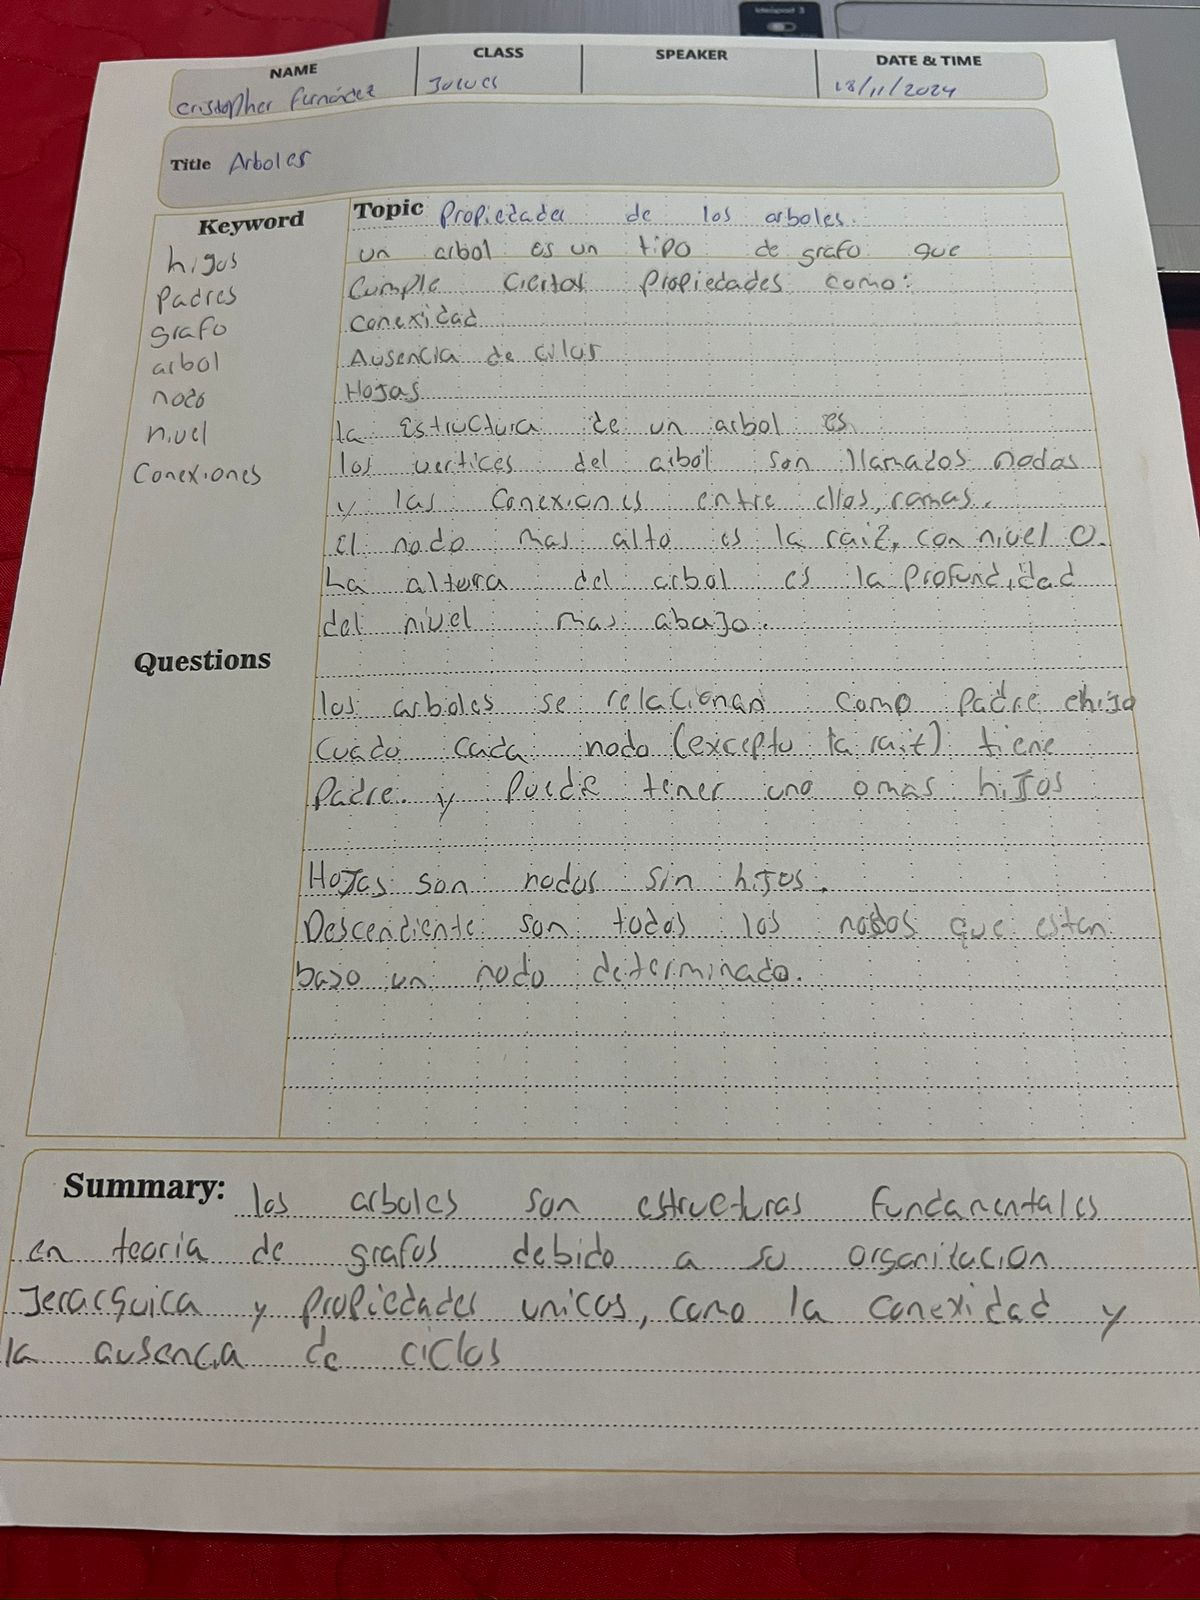 ideapad 3
NAME CLASS SPEAKER DATE & TIME
Cristopher Fernández Jueves 28/11/2024
Title Arboles
Keyword
higos
Padres
grafo
arbol
nodo
nivel
Conexiones
Topic Propiedades de los arboles.
un arbol es un tipo de grafo que
Cumple Ciertas Propiedades como:
Conexidad
Ausencia de ciclos
Hojas
la Estructura de un arbol es
los vertices del arbol son llamados nodos
y las Conexiones entre ellos, ramas.
el nodo mas alto es la raiz, con nivel 0.
La altura del arbol es la Profundidad
del nivel mas abajo.
Questions
los arboles se relacionan como Padre e hijo
Cuado cada nodo (excepto la raiz) tiene
Padre. y Puede tener uno o mas hijos
Hojas son nodos sin hijos.
Descendiente son todos los nodos que estan
bajo un nodo determinado.
Summary: los arboles son estructuras fundamentales
en teoria de grafos debido a su organizacion
Jerarquica y Propiedades unicas, como la conexidad y
la ausencia de ciclos